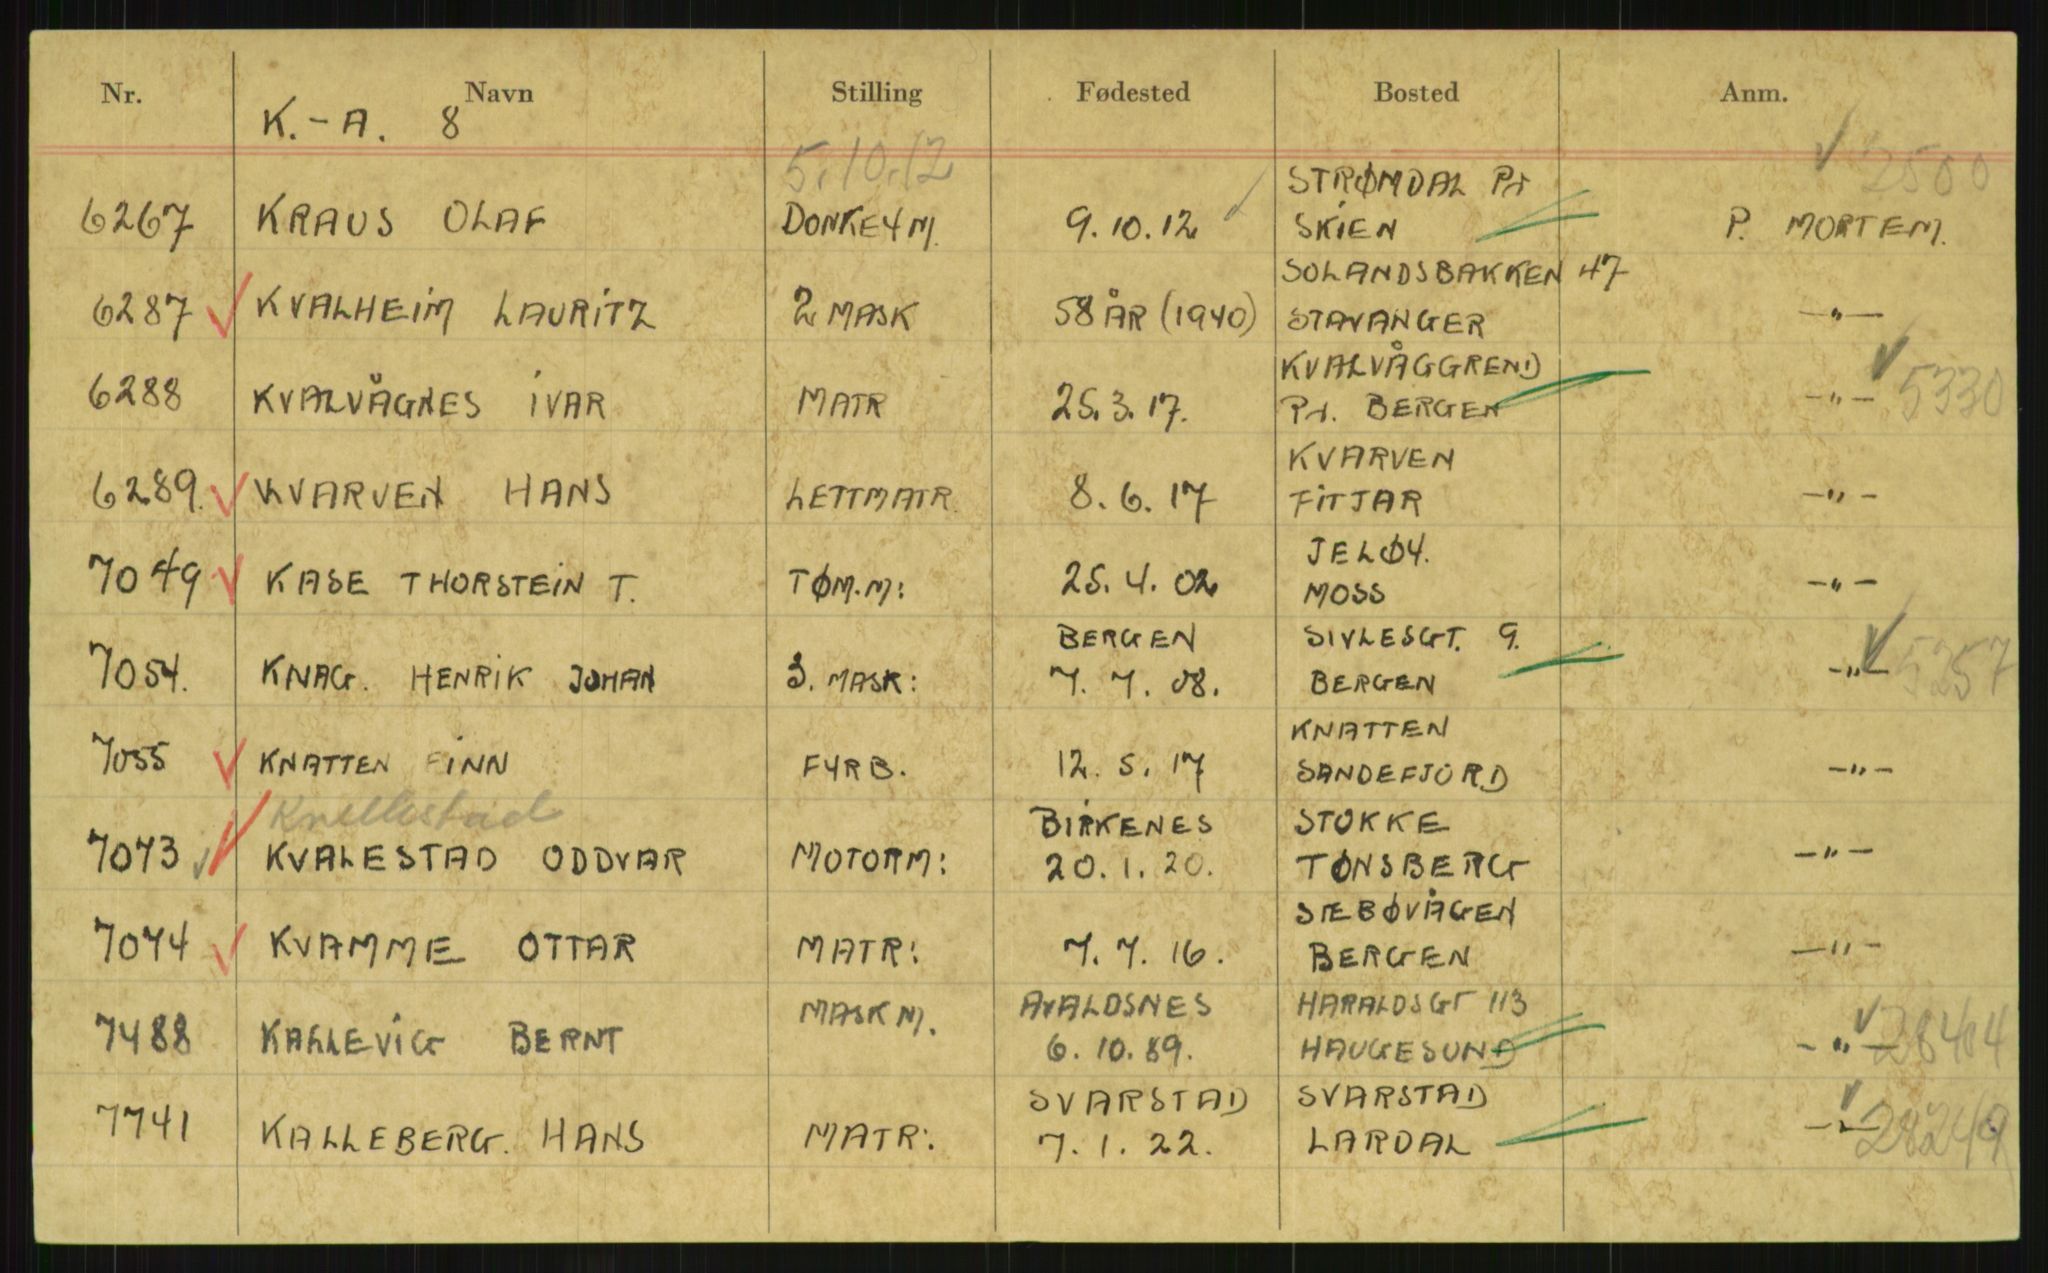 Nr. Navn Stilling Fødested Bosted Anm.
K.-A. 8
5.10.12 2500
STRØMDAL Pr
6267 KRAUS OLAF DONKEYM. 9.10.12 SKIEN P. MORTEM.
SOLANDSBAKKEN 47
6287 KVALHEIM LAURITZ 2 MASK 58 ÅR (1940) STAVANGER —"—
KVALVÅGGREND
6288 KVALVÅGNES IVAR MATR 25.3.17. Pr. BERGEN -"- 5330
KVARVEN
6289. KVARVEN HANS LETTMATR. 8.6.17 FITJAR -"-
JELØY.
7049 KASE THORSTEIN T. TØM.M: 25.4.02 MOSS -"-
BERGEN SIVLESGT. 9.
7054. KNAG. HENRIK JOHAN 3. MASK: 7.7.08. BERGEN -"- 5257
KNATTEN
7055 KNATTEN FINN FYRB. 12.5.17 SANDEFJORD -"-
Knellestad BIRKENES STOKKE
7073 KVALESTAD ODDVAR MOTORM: 20.1.20. TØNSBERG -"-
SÆBØVÅGEN
7074 KVAMME OTTAR MATR: 7.7.16. BERGEN —"-
MASKM. AVALDSNES HARALDSGT 113
7488 KALLEVIG BERNT 6.10.89. HAUGESUND -"- 28404
SVARSTAD SVARSTAD
7741 KALLEBERG. HANS MATR: 7.1.22. LARDAL -"- 28249